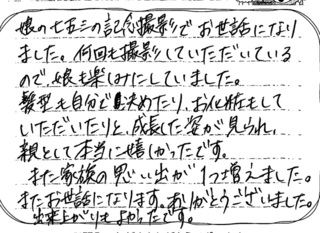 娘の七五三の記念撮影でお世話になり
ました。何回も撮影していただいている
ので、娘も楽しみにしていました。
髪型も自分で決めたり、お化粧もして
いただいたりと、成長した姿が見られ、
親として本当に嬉しかったです。
また家族の思い出が1つ増えました。
またお世話になります。ありがとうございました。
出来上がりもよかったです。